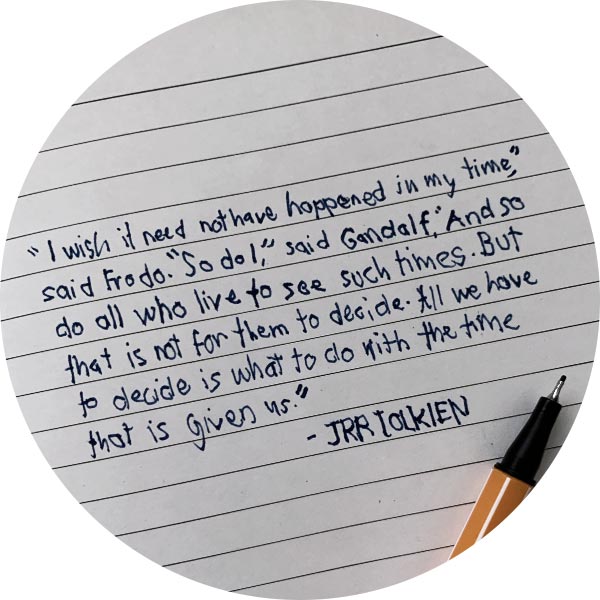 "I wish it need not have happened in my time,"
said Frodo. "So do I," said Gandalf, "And so
do all who live to see such times. But
that is not for them to decide. All we have
to decide is what to do with the time
that is given us."
- JRR TOLKIEN